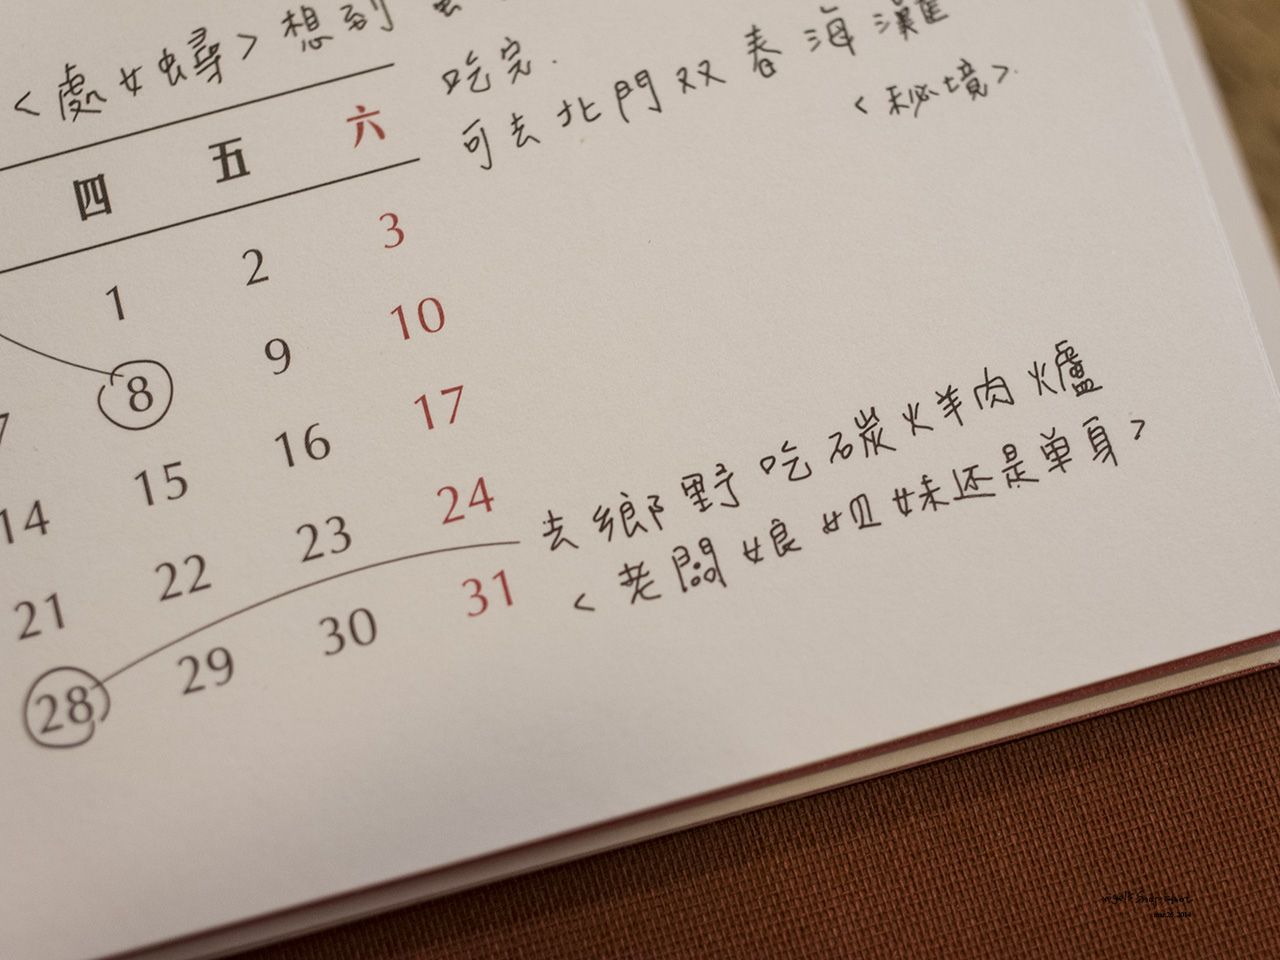 <處女蟳>想到
吃完.
可去北門双春海漢
<秘境>
四 五 六
1 2 3
8 9 10
15 16 17
14
22 23 24
21
29 30 31
28
去鄉野吃碳火羊肉爐
<老闆娘姐妹还是单身>